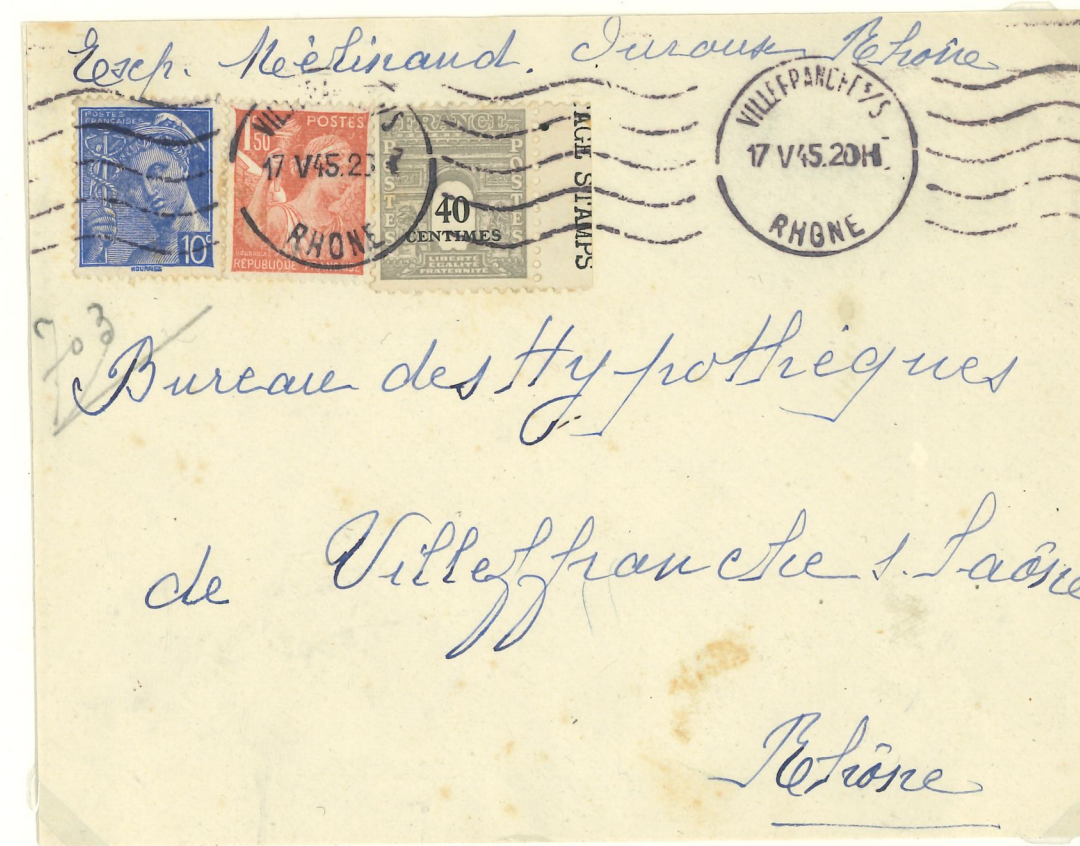 Exp. Mélinand. Ouroux Rhône
POSTES
FRANÇAISES
10c
1F50
POSTES
RÉPUBLIQUE FRANÇAISE
FRANCE
POSTES
POSTES
40
CENTIMES
LIBERTÉ
ÉGALITÉ
FRATERNITÉ
AGE STAMPS
17 V45.20
RHONE
VILLEFRANCHE S/S
17 V45.20H
RHONE
703
Bureau des Hypothèques
de Villeffranche s. Saône
Rhône